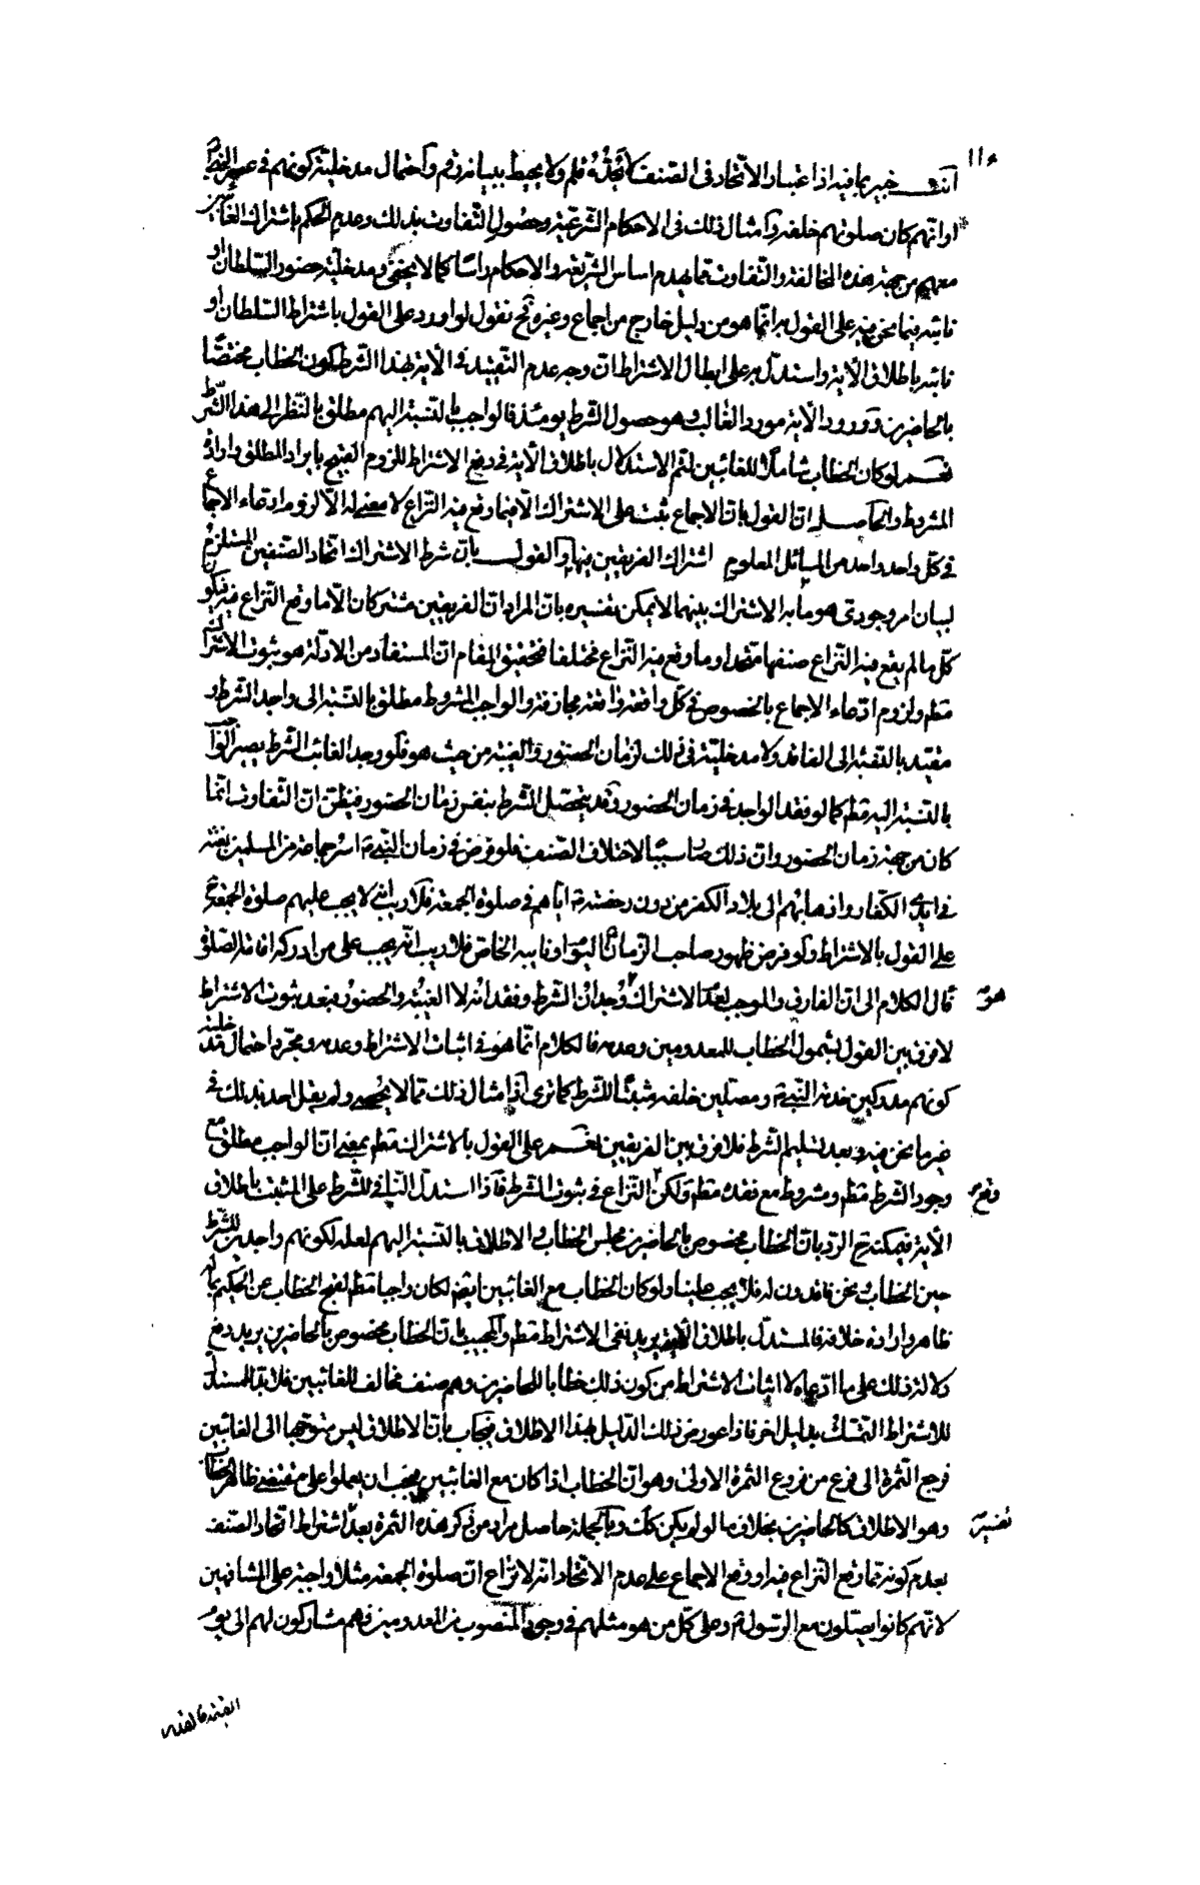 ١١٥
انت خبير بما فيه اذ اعتبار الاتحاد فى الصنف لا يحده قلم ولا يحيط ببيانه رقم واحتمال مدخلية كونهم فى عصر النبى
او انهم كان صلوتهم خلفه وامثال ذلك فى الاحكام الشرعية وحصول التفاوت بذلك وعدم الحكم باشتراك الغائبين
معهم من جهة هذه المخالفة والتفاوت مما يهدم اساس الشريعة والاحكام راسًا كما لا يخفى ومدخلية حضور السلطان او
نائبه فيما نحن فيه على القول به انما هو من دليل خارج من اجماع وغيره نعم نقول لو اورد على القول باشتراط السلطان او
نائبه باطلاق الآية واستدل به على ابطال الاشتراط ان وجه عدم التقييد فى الآية بهذا الشرط كون الخطاب مختصًا
بالحاضرين وورود الآية مورد الغالب وهو حصول الشرط يومئذ فالواجب بالنسبة اليهم مطلق بالنظر الى هذا الشرط
نعم لو كان الخطاب شاملًا للغائبين لتم الاستدلال باطلاق الآية فى دفع الاشتراط للزوم القبيح بايراد المطلق وارادة
المشروط والحاصل ان القول بان الاجماع ثبت على الاشتراك الا فيما وقع فيه النزاع لا معنى له الا لزوم ادعاء الاجماع
فى كل واحد واحد من المسائل المعلوم اشتراك الفريقين فيها والقول بان شرط الاشتراك اتحاد الصنفين المستلزم
لبيان امر وجودى هو ما به الاشتراك بينهما لا يمكن تفسيره بان المراد ان الفريقين مشتركان الا ما وقع النزاع فيه فيكون
كل ما لم يقع فيه النزاع صنفها متحدا وما وقع فيه النزاع مختلفا فتحقيق المقام ان المستفاد من الادلة هو ثبوت الاشتراك
مطم ولزوم ادعاء الاجماع بالخصوص فى كل واقعة واقعة مجازفة والواجب المشروط مطلق بالنسبة الى واجد الشرط و
مقيد بالنسبة الى الفاقد ولا مدخلية فى ذلك لزمان الحضور والغيبة من حيث هو فلو وجد الغائب الشرط يصير الواجب
بالنسبة اليه مطم كما لو فقد الواجد فى زمان الحضور وقد يتحصل الشرط بنفس زمان الحضور فيظن ان التفاوت انما
كان من جهة زمان الحضور وان ذلك صار سببًا لاختلاف الصنف فلو فرض فى زمان النبى ص اسر جماعة من المسلمين
فى ايدى الكفار واذهابهم الى بلاد الكفر من دون رخصته ص اياهم فى صلوة الجمعة فلا ريب انه لا يجب عليهم صلوة الجمعة ح
على القول بالاشتراط ولو فرض ظهور صاحب الزمان اليوم او نايبه الخاص فلا ريب انه يجب على من ادركه اقامة الصلوة
فآل الكلام الى ان الفارق والموجب لعدم الاشتراك هو وجدان الشرط وفقدانه لا الغيبة والحضور فبعد ثبوت الاشتراط
لا فرق بين القول بشمول الخطاب للمعدومين وعدمه فالكلام انما هو فى اثبات الاشتراط وعدمه ومجرد احتمال مدخلية
كونهم مدركين خدمة النبى ص ومصلين خلفه مثبتًا للشرط كما ترى اذ امثال ذلك مما لا يحصى ولم يقل احد بذلك فى
غير ما نحن فيه وبعد تسليم الشرط فلا فرق بين الفريقين نعم على القول بالاشتراك مطم بمعنى ان الواجب مطلق مع
وجود الشرط مطم ومشروط مع فقده مطم ولكن وقع النزاع فى ثبوت الشرط فاذا استدل النافى للشرط على المثبت باطلاق
الآية فيمكنه ح الرد بان الخطاب مخصوص بالحاضرين مجلس الخطاب والاطلاق بالنسبة اليهم لعله لكونهم واجدين للشرط
حين الخطاب ونحن فاقدون له فلا يجب علينا ولو كان الخطاب مع الغائبين ايضم لكان واجبا مطم لقبح الخطاب عن الحكيم بما له
ظاهر وارادة خلافه فالمستدل باطلاق الآية يريد نفى الاشتراط مطم والمجيب بان الخطاب مخصوص بالحاضرين يريد دفع
دلالة ذلك على ما ادعاه لا اثبات الاشتراط من كون ذلك خطابا للحاضرين وهم صنف مخالف للغائبين فلا بد المستدل
للاشتراط التمسك بدليل آخر فاذا عورض ذلك الدليل بهذا الاطلاق فيجاب بان الاطلاق ليس متوجها الى الغائبين
فرجع الثمرة الى فرع من فروع الثمرة الاولى وهو ان الخطاب اذا كان مع الغائبين فيجب ان يعملوا على مقتضى ظاهر الخطاب
وهو الاطلاق كالحاضرين بخلاف ما لو لم يكن كك وبالجملة حاصل مراد من ذكر هذه الثمرة بعد تفسير اشتراط اتحاد الصنف
بعدم كونه مما وقع النزاع فيه او وقع الاجماع على عدم الاتحاد انه لا نزاع ان صلوة الجمعة مثلا واجبة على المشافهين
لانهم كانوا يصلون مع الرسول ص وعلى كل من هو مثلهم فى وجود المنصوب من المعدومين فهم مشاركون لهم الى يوم
القيمة فالقدر